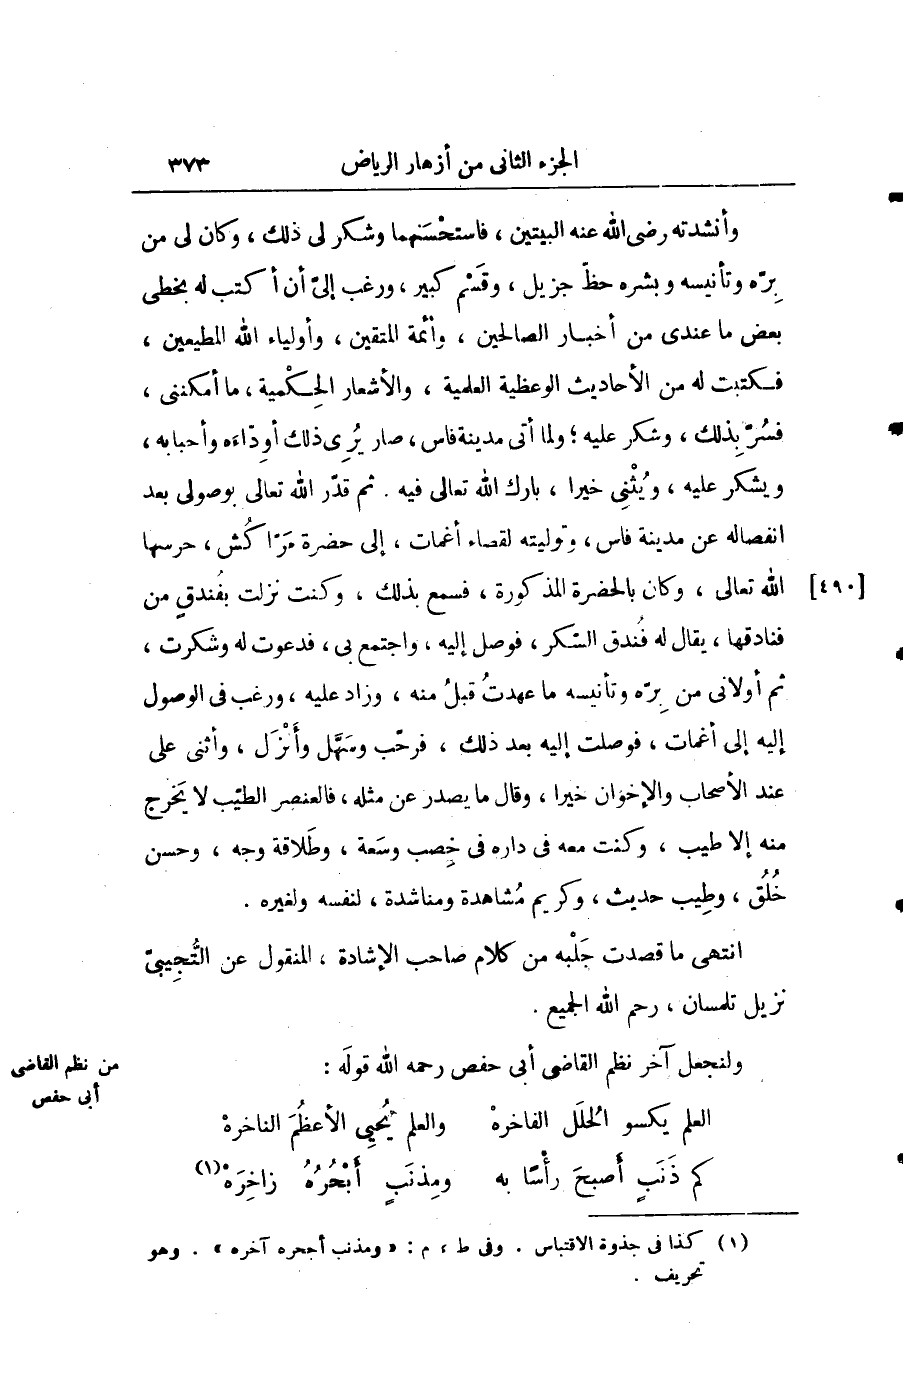 الجزء الثانى من أزهار الرياض ٣٧٣
وأنشدته رضى الله عنه البيتين ، فاستحْسَنهما وشكر لى ذلك ، وكان لى من
بِرّه وتأنيسه وبشره حظّ جزيل ، وقَسْم كبير ، ورغب إلىّ أن أكتب له بخطى
بعض ما عندى من أخبار الصالحين ، وأئمة المتقين ، وأولياء الله المطيعين ،
فكتبت له من الأحاديث الوعظية العلمية ، والأشعار الحِكْمية ، ما أمكننى ،
فسُرّ بِذلك ، وشكر عليه ؛ ولما أتى مدينة فاس ، صار يُرِى ذلك أوِدّاءه وأحبابه ،
ويشكر عليه ، ويُثْنِى خيرا ، بارك الله تعالى فيه . ثم قدّر الله تعالى بوصولى بعد
انفصاله عن مدينة فاس ، وتوليته لقصاء أغمات ، إلى حضرة مَرّاكُش ، حرسها
الله تعالى ، وكان بالحضرة المذكورة ، فسمع بذلك ، وكنت نزلت بفُندقٍ من [٤٩٠]
فنادقها ، يقال له فُندق السّكر ، فوصل إليه ، واجتمع بى ، فدعوت له وشكرت ،
ثم أولانى من بِرّه وتأنيسه ما عهدتُ قبلُ منه ، وزاد عليه ، ورغب فى الوصول
إليه إلى أغمات ، فوصلت إليه بعد ذلك ، فرحّب وسَهَّل وأَنْزَل ، وأثنى على
عند الأصحاب والإخوان خيرا ، وقال ما يصدر عن مثله ، فالعنصر الطيّب لا يَخرج
منه إلا طيب ، وكنت معه فى داره فى خِصب وسَعة ، وطَلاقة وجه ، وحسن
خُلُق ، وطِيب حديث ، وكريم مُشاهدة ومناشدة ، لنفسه ولغيره .
انتهى ما قصدت جَلْبه من كلام صاحب الإشادة ، المنقول عن التُّجِيبىّ
نزيل تلمسان ، رحم الله الجميع .
ولنجعل آخر نظم القاضى أبى حفص رحمه الله قولَه :
من نظم القاضى
أبى حفص
العلم يكسو الحُلَل الفاخرهْ والعلم يُحيِى الأعظُمَ الناخرهْ
كم ذَنَبٍ أصبحَ رأْسًا به ومِذنَبٍ أَبْحُرُهُ زاخِرَهْ (١)
(١) كذا فى جذوة الاقتباس . وفى ط ، م : « ومذنب أجحره آخره » . وهو
تحريف .